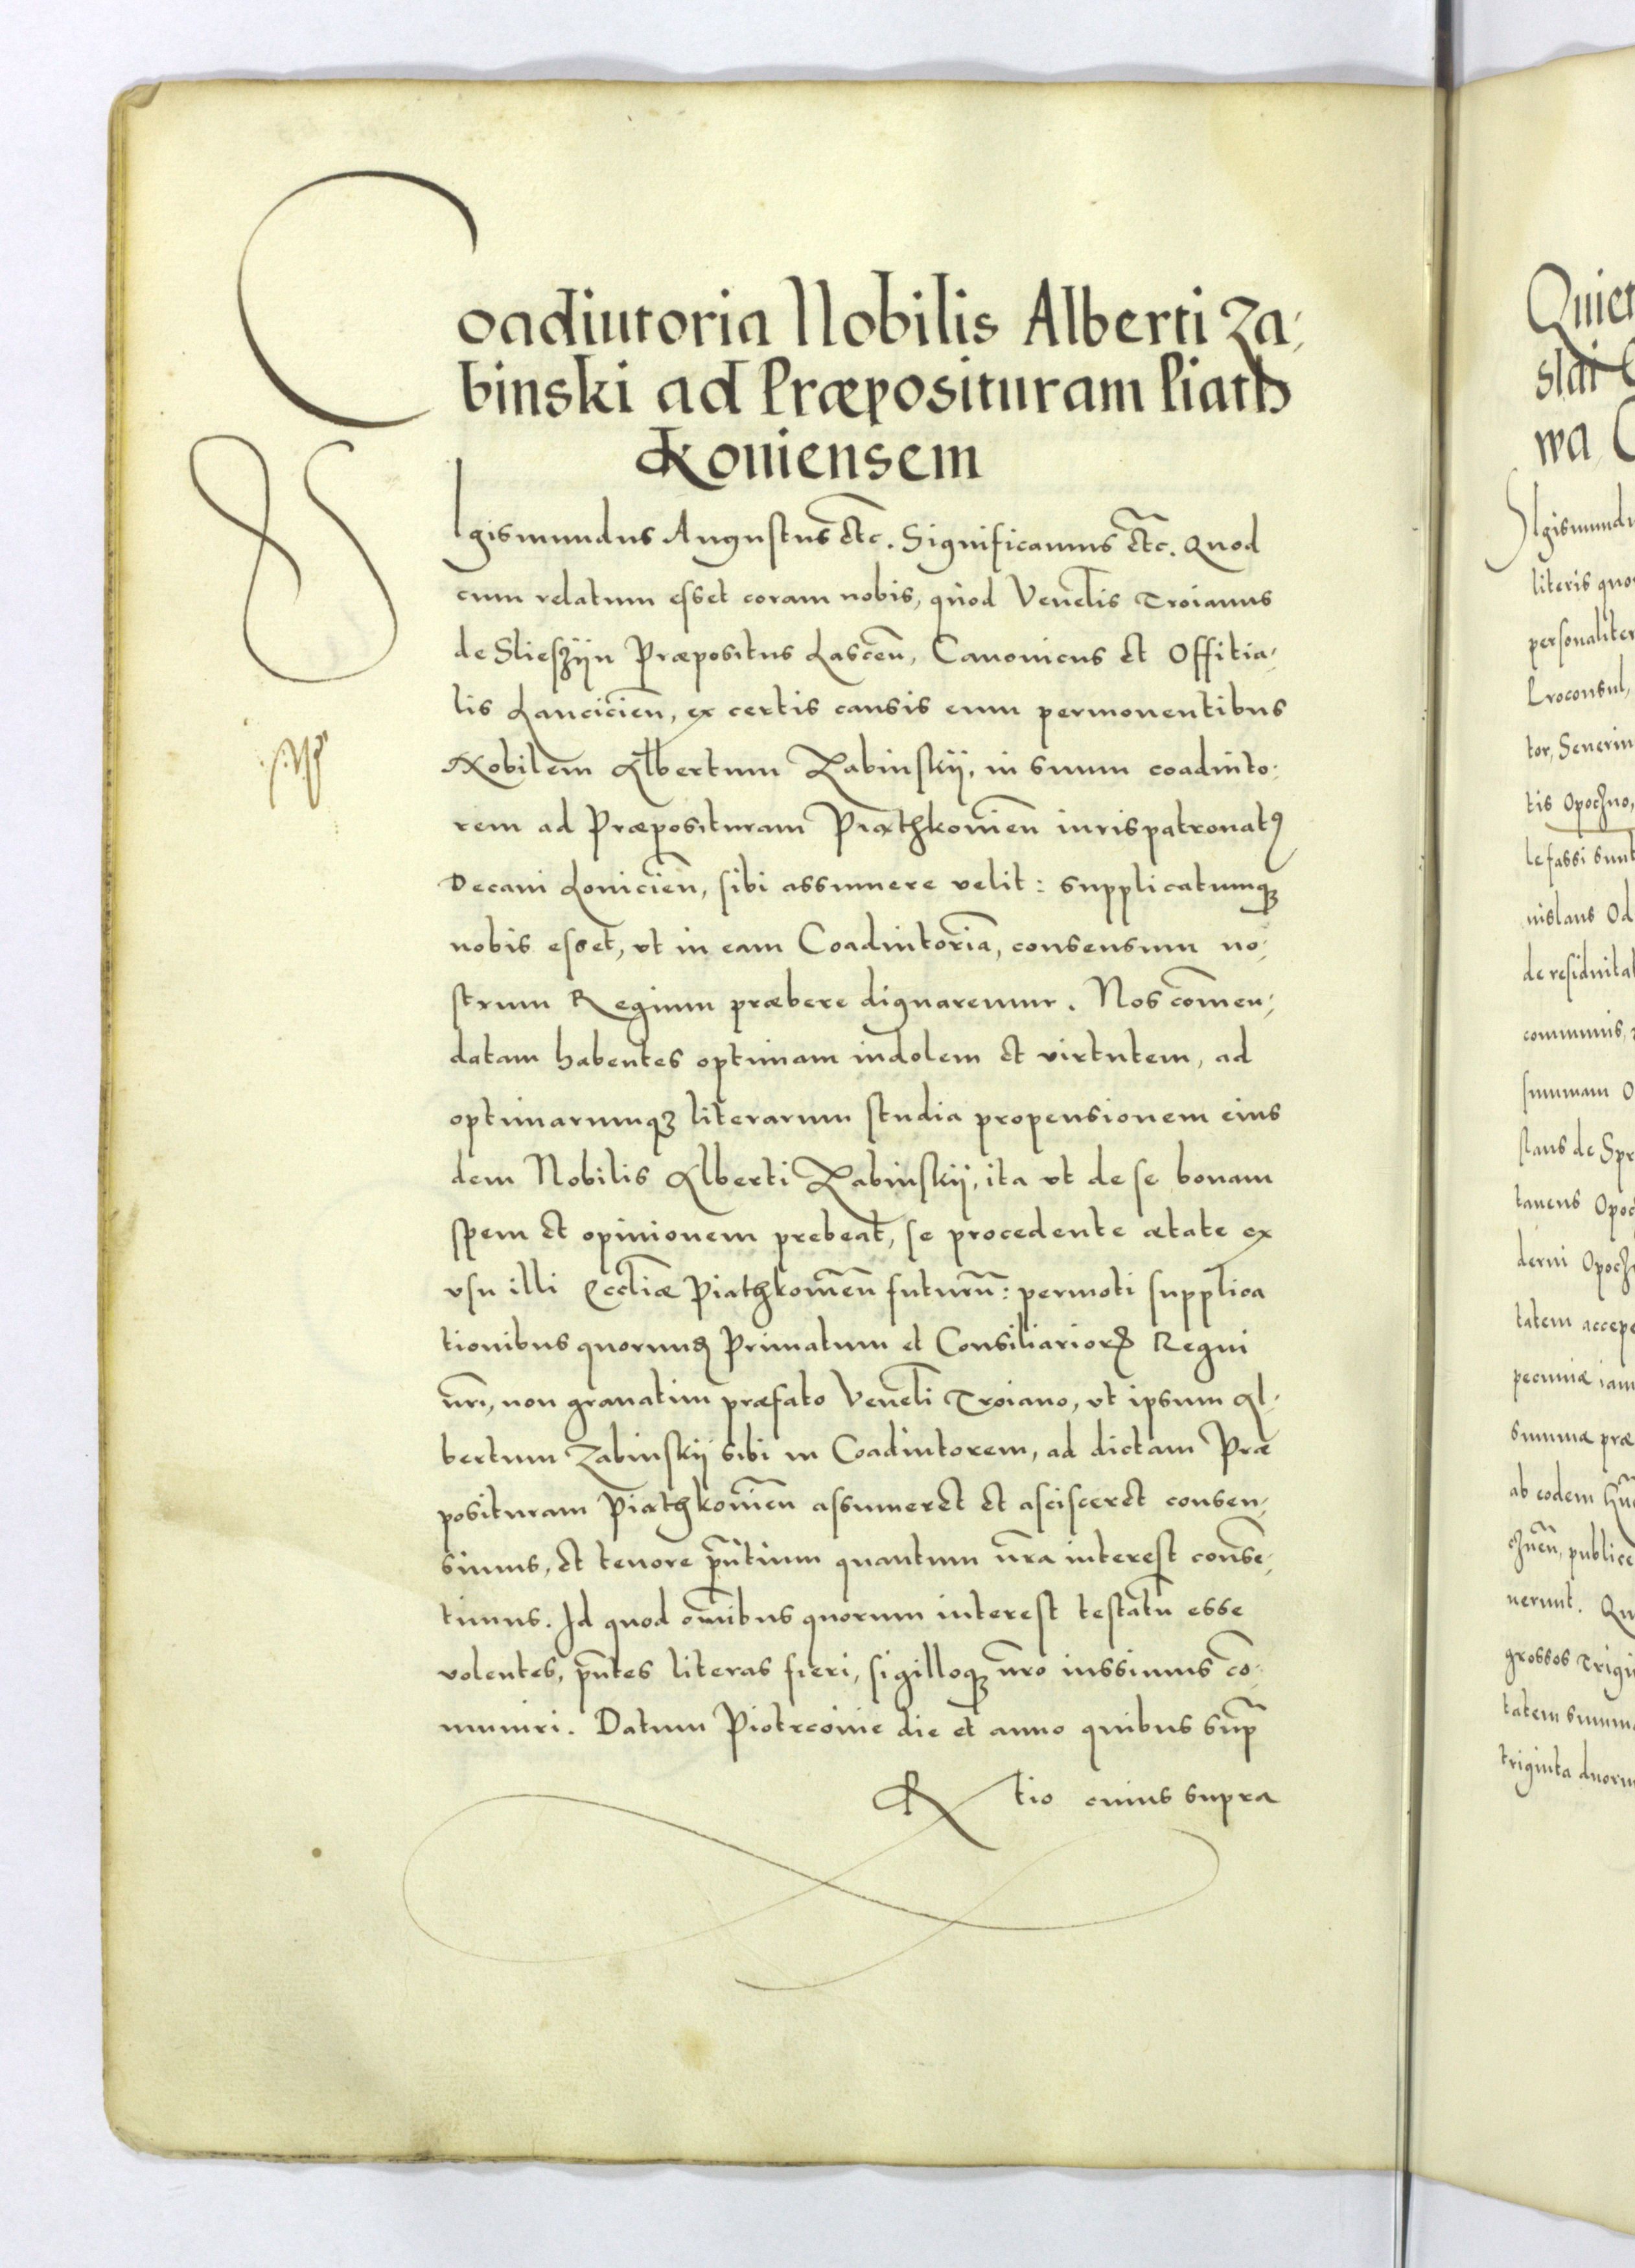 Coadiutoria Nobilis Alberti Za-
binski ad Præposituram Piath
koviensem
Sigismundus Augustus etc. Significamus etc. Quod
cum relatum esset coram nobis, quod Venelis Troianus
de Slieszÿn Præpositus Lascen̄, Canonicus et Offitia-
lis Lancicien̄, ex certis causis eum permouentibus
Nobilem Albertum Zabinskÿ, in suum coadiuto-
rem ad Præposituram Piathkouien̄ iurispatronatꝰ
Decani Louicien̄, sibi assumere velit: supplicatumqꝫ
nobis esset, vt in eam Coadiutoriā, consensum no-
strum Regium præbere dignaremur. Nos com̄en-
datam habentes optimam indolem et virtutem, ad
optimarumqꝫ literarum studia propensionem eius
dem Nobilis Alberti Zabinskÿ, ita vt de se bonam
spem et opinionem prebeat, se procedente ætate ex
vsu illi Eccliæ Piathkouien̄ futurū: permoti supplica
tionibus quorund Primatum et Consiliarioꝝ Regni
nr̄i, non grauatim præfato Veneli Troiano, vt ipsum Al-
bertum Zabinskÿ sibi in Coadiutorem, ad dictam Præ
posituram Piathkouien̄ assumeret et ascisceret consen-
simus, et tenore pn̄tium quantum nr̄a interest consē-
timus. Id quod om̄ibus quorum interest testatū esse
volentes, pn̄tes literas fieri, sigilloqꝫ nr̄o iussimus cō-
muniri. Datum Piotrcouie die et anno quibus sup̄
R tio cuius supra
Quiet
slai
wa
Sigismundu
literis quo
personaliter
Proconsul,
tor, Seuerin
tis Opoczno,
le fassi sunt
nislaus Od
de residuita
communis,
summam
slaus de Spr
taneus Opoc
derni Opocz
tatem accepe
pecuniæ iam
summæ præ
ab eodem
cznen̄, publice
nerunt. Qu
grossos Trigi
tatem summ
triginta duoru